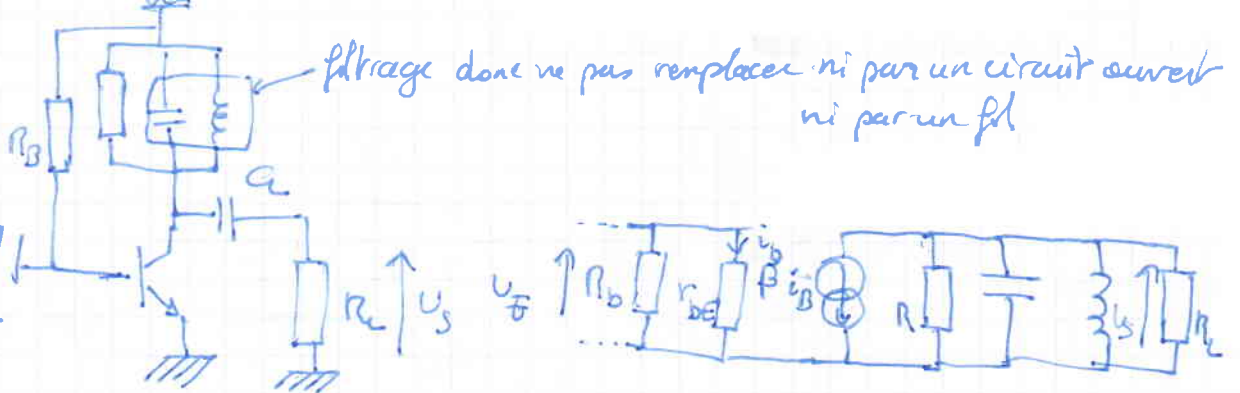 filtrage donc ne pas remplacer ni par un circuit ouvert
ni par un fil
R_B
C_L
R_L
U_S
U_E
R_b
i_b
r_bE
β i_B
R
U_S
R_L